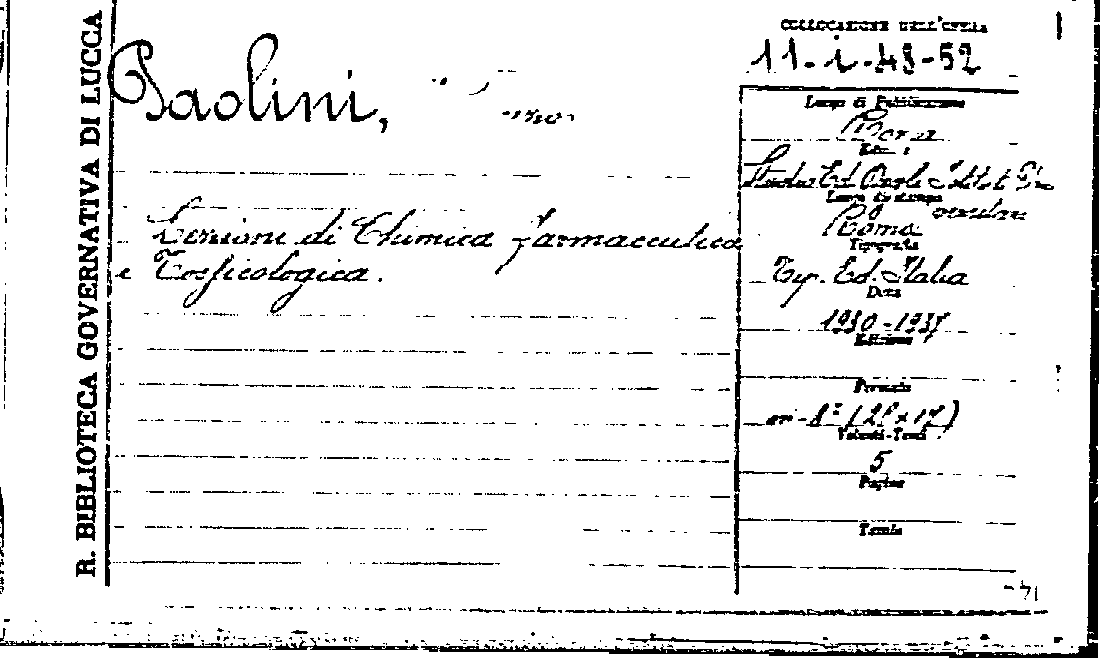 R. BIBLIOTECA GOVERNATIVA DI LUCCA
Paolini,
Lezioni di Chimica farmaceutica
e Tossicologica.
COLLOCAZIONE DELL'OPERA
11-i-48-52
Luogo di Pubblicazione
Roma
Studio Ed. Degli Istituti
Luogo di stampa
Roma
Tipografia
Tip. Ed. Italia
Data
1930-1937
Edizione
Formato
in-8°
Volumi-Tomi
5
Pagine
Tavole